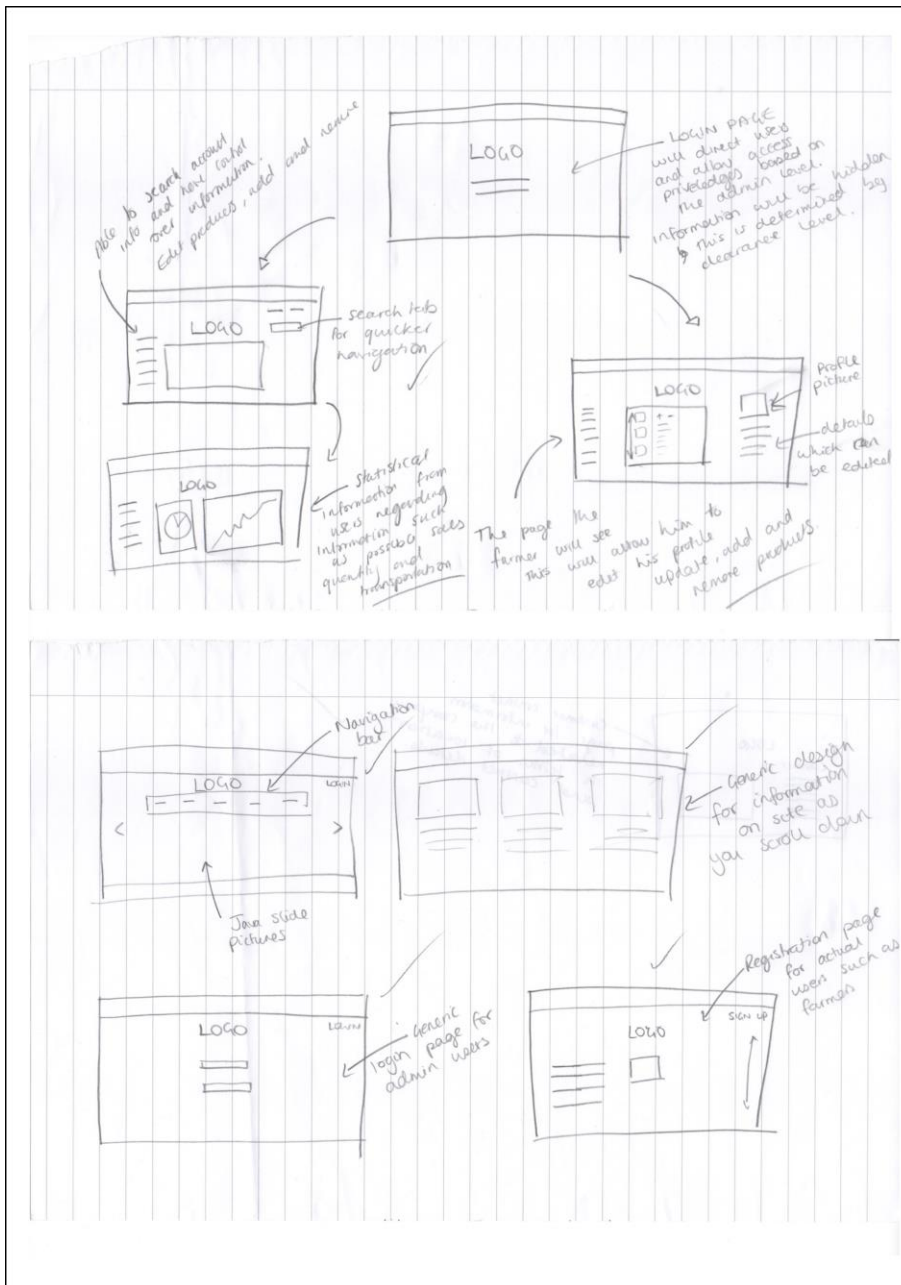 Able to search account
info and have control
over information.
Edit produces, add and remove
LOGO
LOGIN PAGE
will direct users
and allow access
priveledges based on
the admin level.
information will be hidden
this is determined by
clearance level.
LOGO
search tab
for quicker
navigation
LOGO
Profile
picture
details
which can
be edited
LOGO
Statistical
information from
users regarding
information such
as possible sales
quantity and
transportation
The page the
farmer will see
This will allow him to
edit his profile
update, add and
remove products.
Navigation
bar
LOGO
LOGIN
< >
Java slide
pictures
Generic design
for information
on site as
you scroll down
LOGO
LOGIN
Generic
login page for
admin users
Registration page
for actual
users such as
farmers
SIGN UP
LOGO